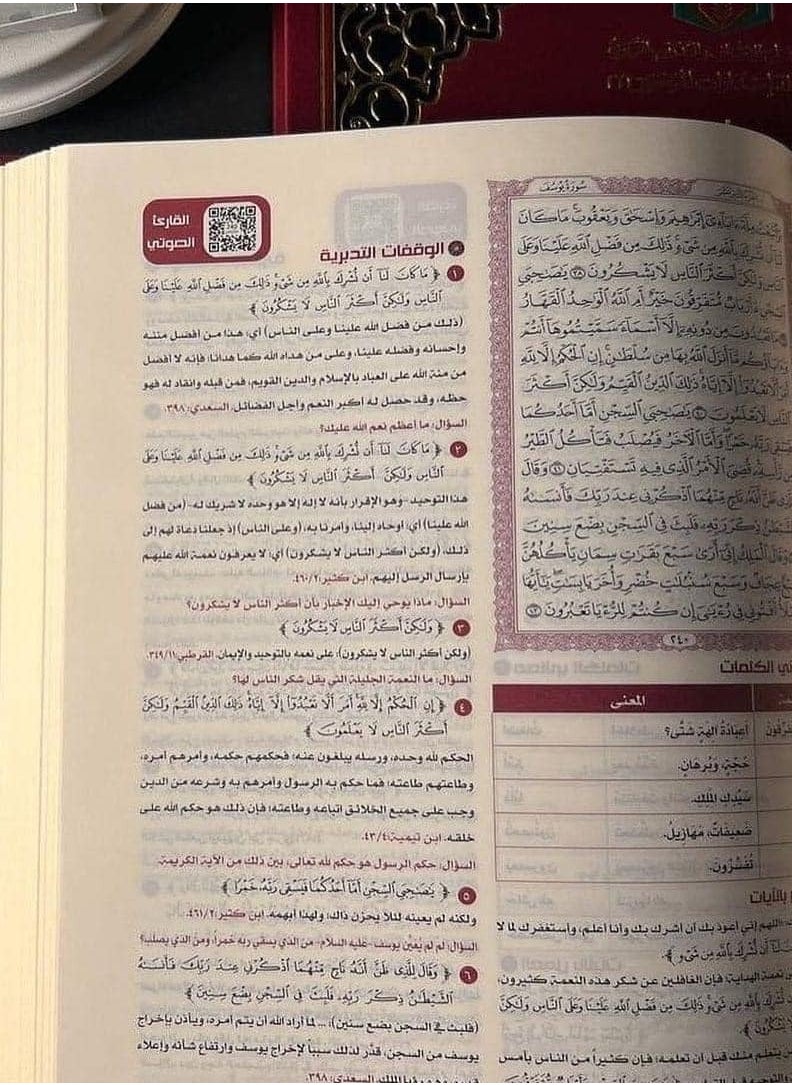 سُورَةُ يُوسُفَ
مِلَّةَ ءَابَآءِىٓ إِبْرَٰهِيمَ وَإِسْحَٰقَ وَيَعْقُوبَ مَا كَانَ
أَن نُّشْرِكَ بِٱللَّهِ مِن شَىْءٍ ذَٰلِكَ مِن فَضْلِ ٱللَّهِ عَلَيْنَا وَعَلَى
وَلَٰكِنَّ أَكْثَرَ ٱلنَّاسِ لَا يَشْكُرُونَ ٣٨ يَٰصَىٰحِبَىِ
ءَأَرْبَابٌ مُّتَفَرِّقُونَ خَيْرٌ أَمِ ٱللَّهُ ٱلْوَٰحِدُ ٱلْقَهَّارُ
مَا تَعْبُدُونَ مِن دُونِهِۦٓ إِلَّآ أَسْمَآءً سَمَّيْتُمُوهَآ أَنتُمْ
وَءَابَآؤُكُم مَّآ أَنزَلَ ٱللَّهُ بِهَا مِن سُلْطَٰنٍ إِنِ ٱلْحُكْمُ إِلَّا لِلَّهِ
أَمَرَ أَلَّا تَعْبُدُوٓا۟ إِلَّآ إِيَّاهُ ذَٰلِكَ ٱلدِّينُ ٱلْقَيِّمُ وَلَٰكِنَّ أَكْثَرَ
ٱلنَّاسِ لَا يَعْلَمُونَ ٤٠ يَٰصَىٰحِبَىِ ٱلسِّجْنِ أَمَّآ أَحَدُكُمَا
فَيَسْقِى رَبَّهُۥ خَمْرًا وَأَمَّا ٱلْءَاخَرُ فَيُصْلَبُ فَتَأْكُلُ ٱلطَّيْرُ
مِن رَّأْسِهِۦ قُضِىَ ٱلْأَمْرُ ٱلَّذِى فِيهِ تَسْتَفْتِيَانِ ٤١ وَقَالَ
لِلَّذِى ظَنَّ أَنَّهُۥ نَاجٍ مِّنْهُمَا ٱذْكُرْنِى عِندَ رَبِّكَ فَأَنسَىٰهُ
ٱلشَّيْطَٰنُ ذِكْرَ رَبِّهِۦ فَلَبِثَ فِى ٱلسِّجْنِ بِضْعَ سِنِينَ
وَقَالَ ٱلْمَلِكُ إِنِّىٓ أَرَىٰ سَبْعَ بَقَرَٰتٍ سِمَانٍ يَأْكُلُهُنَّ
سَبْعٌ عِجَافٌ وَسَبْعَ سُنۢبُلَٰتٍ خُضْرٍ وَأُخَرَ يَابِسَٰتٍ يَٰٓأَيُّهَا
ٱلْمَلَأُ أَفْتُونِى فِى رُءْيَٰىَ إِن كُنتُمْ لِلرُّءْيَا تَعْبُرُونَ ٤٣
٢٤٠
الكلمات
المعنى
أعِبَادَةُ آلِهَةٍ شَتَّى؟
حُجَّةٍ، وَبُرْهَانٍ.
سَيِّدِكَ المَلِكِ.
ضَعِيفَاتٌ، مَهَازِيلُ.
تُفَسِّرُونَ.
بالآيات
اللهم إني أعوذ بك أن أشرك بك وأنا أعلم، وأستغفرك لما لا
أَن نُّشْرِكَ بِٱللَّهِ مِن شَىْءٍ ﴾.
نعمة الهداية؛ فإن الغافلين عن شكر هذه النعمة كثيرون،
نُّشْرِكَ بِٱللَّهِ مِن شَىْءٍ ذَٰلِكَ مِن فَضْلِ ٱللَّهِ عَلَيْنَا وَعَلَى ٱلنَّاسِ وَلَٰكِنَّ
لَا يَشْكُرُونَ ﴾
يتعلم منك قبل أن تعلمه؛ فإن كثيراً من الناس بأمس
القارئ
الصوتي
الوقفات التدبرية
١ ﴿ مَا كَانَ لَنَآ أَن نُّشْرِكَ بِٱللَّهِ مِن شَىْءٍ ذَٰلِكَ مِن فَضْلِ ٱللَّهِ عَلَيْنَا وَعَلَى
ٱلنَّاسِ وَلَٰكِنَّ أَكْثَرَ ٱلنَّاسِ لَا يَشْكُرُونَ ﴾
(ذلك من فضل الله علينا وعلى الناس) أي: هذا من أفضل مننه
وإحسانه وفضله علينا، وعلى من هداه الله كما هدانا؛ فإنه لا أفضل
من منة الله على العباد بالإسلام والدين القويم، فمن قبله وانقاد له فهو
حظه، وقد حصل له أكبر النعم وأجل الفضائل. السعدي: ٣٩٨.
السؤال: ما أعظم نعم الله عليك؟
٢ ﴿ مَا كَانَ لَنَآ أَن نُّشْرِكَ بِٱللَّهِ مِن شَىْءٍ ذَٰلِكَ مِن فَضْلِ ٱللَّهِ عَلَيْنَا وَعَلَى
ٱلنَّاسِ وَلَٰكِنَّ أَكْثَرَ ٱلنَّاسِ لَا يَشْكُرُونَ ﴾
هذا التوحيد -وهو الإقرار بأنه لا إله إلا هو وحده لا شريك له- (من فضل
الله علينا) أي: أوحاه إلينا، وأمرنا به، (وعلى الناس) إذ جعلنا دعاة لهم إلى
ذلك، (ولكن أكثر الناس لا يشكرون) أي: لا يعرفون نعمة الله عليهم
بإرسال الرسل إليهم. ابن كثير: ٤٦٠/٢.
السؤال: ماذا يوحي إليك الإخبار بأن أكثر الناس لا يشكرون؟
٣ ﴿ وَلَٰكِنَّ أَكْثَرَ ٱلنَّاسِ لَا يَشْكُرُونَ ﴾
(ولكن أكثر الناس لا يشكرون): على نعمه بالتوحيد والإيمان. القرطبي: ٣٤٩/١١.
السؤال: ما النعمة الجليلة التي يقل شكر الناس لها؟
٤ ﴿ إِنِ ٱلْحُكْمُ إِلَّا لِلَّهِ أَمَرَ أَلَّا تَعْبُدُوٓا۟ إِلَّآ إِيَّاهُ ذَٰلِكَ ٱلدِّينُ ٱلْقَيِّمُ وَلَٰكِنَّ
أَكْثَرَ ٱلنَّاسِ لَا يَعْلَمُونَ ﴾
الحكم لله وحده، ورسله يبلغون عنه؛ فحكمهم حكمه، وأمرهم أمره،
وطاعتهم طاعته؛ فما حكم به الرسول وأمرهم به وشرعه من الدين
وجب على جميع الخلائق اتباعه وطاعته؛ فإن ذلك هو حكم الله على
خلقه. ابن تيمية: ٤٣/٤.
السؤال: حكم الرسول هو حكم لله تعالى، بين ذلك من الآية الكريمة.
٥ ﴿ يَٰصَىٰحِبَىِ ٱلسِّجْنِ أَمَّآ أَحَدُكُمَا فَيَسْقِى رَبَّهُۥ خَمْرًا ﴾
ولكنه لم يعينه لئلا يحزن ذاك؛ ولهذا أبهمه. ابن كثير: ٤٦١/٢.
السؤال: لم لم يُعَيِّن يوسف -عليه السلام- من الذي يسقي ربه خمراً، ومن الذي يصلب؟
٦ ﴿ وَقَالَ لِلَّذِى ظَنَّ أَنَّهُۥ نَاجٍ مِّنْهُمَا ٱذْكُرْنِى عِندَ رَبِّكَ فَأَنسَىٰهُ
ٱلشَّيْطَٰنُ ذِكْرَ رَبِّهِۦ فَلَبِثَ فِى ٱلسِّجْنِ بِضْعَ سِنِينَ ﴾
(فلبث في السجن بضع سنين): ... لما أراد الله أن يتم أمره، ويأذن بإخراج
يوسف من السجن، قدَّر لذلك سبباً لإخراج يوسف وارتفاع شأنه وإعلاء
الملك. السعدي: ٣٩٨.